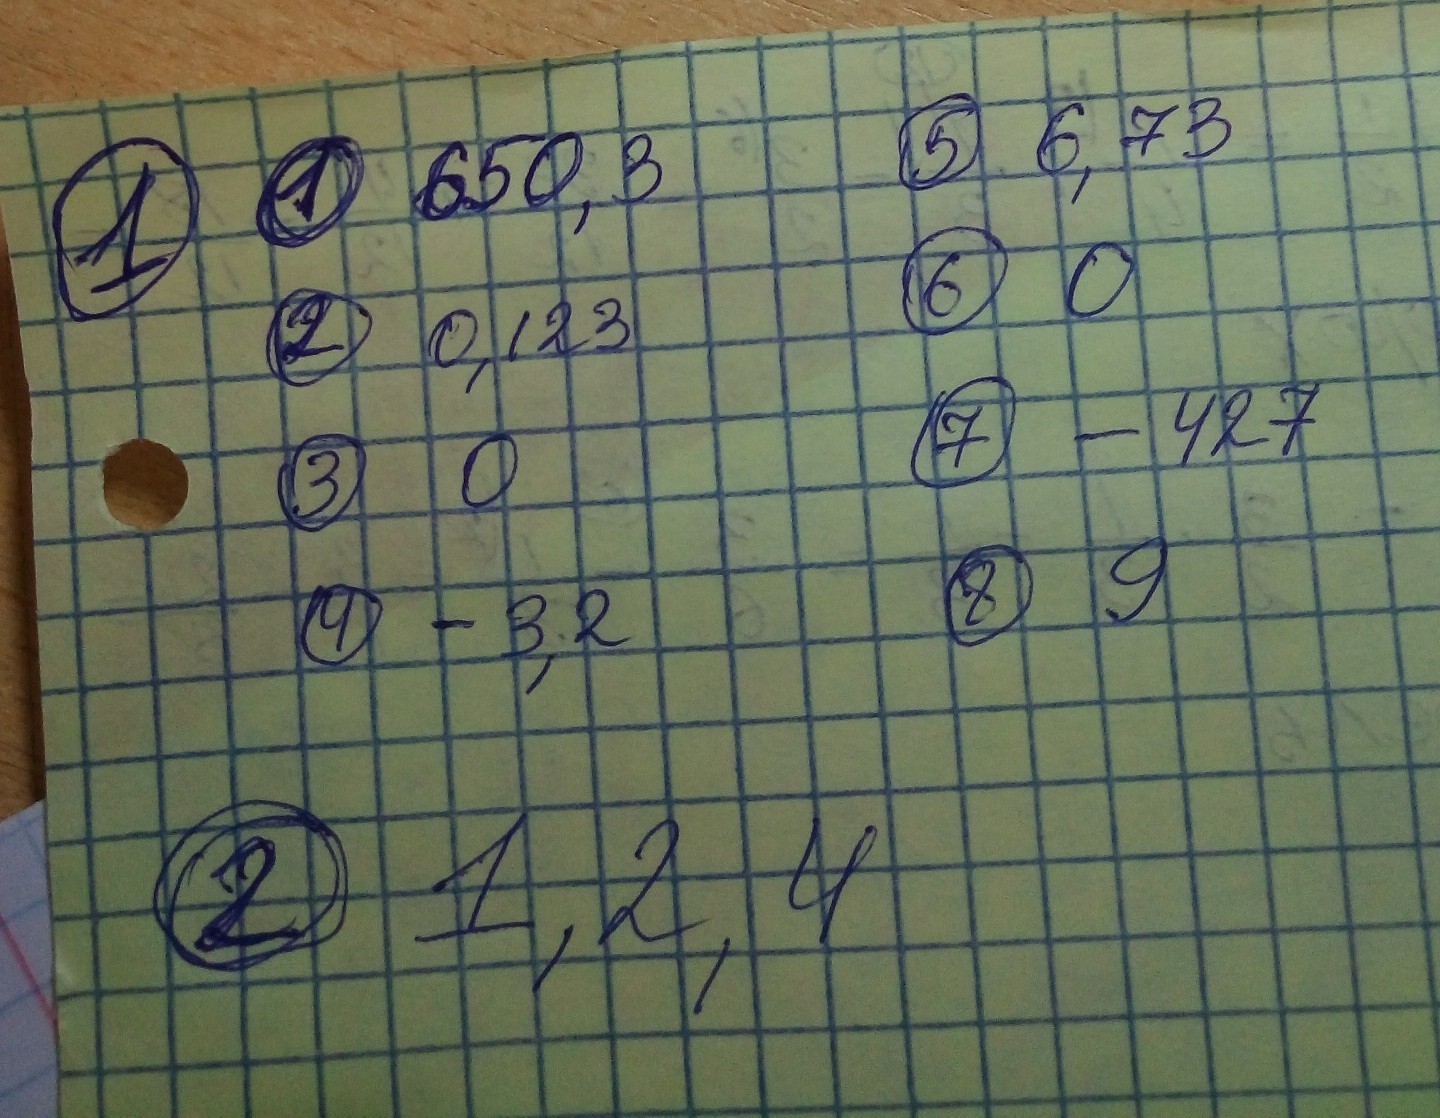 1 1 650,3
2 0,123
3 0
4 - 3,2
5 6,73
6 0
7 - 427
8 9
2 1, 2, 4